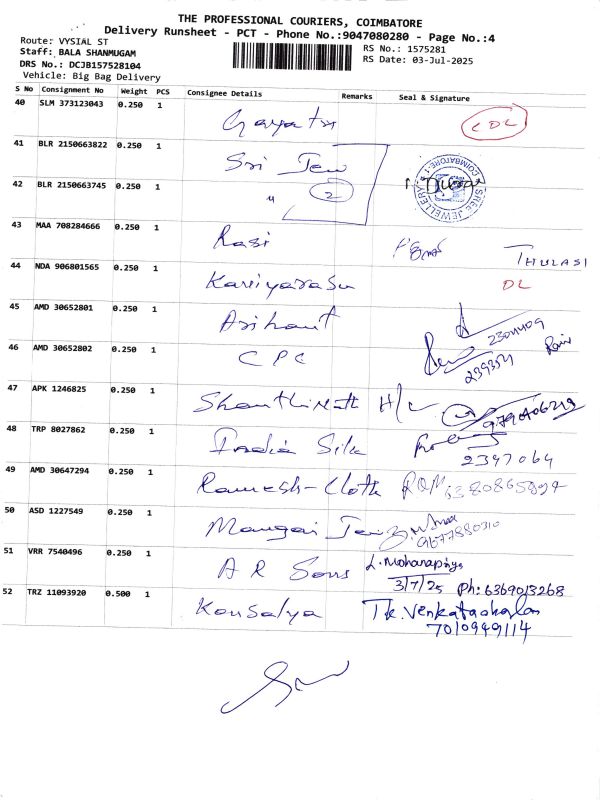 THE PROFESSIONAL COURIERS, COIMBATORE
Delivery Runsheet - PCT - Phone No.:9047080280 - Page No.:4
Route: VYSIAL ST
RS No.: 1575281
Staff: BALA SHANMUGAM
RS Date: 03-Jul-2025
DRS No.: DCJB157528104
Vehicle: Big Bag Delivery
S No Consignment No Weight PCS Consignee Details Remarks Seal & Signature
40 SLM 373123043 0.250 1 Gayatri CDL
41 BLR 2150663822 0.250 1 Sri Jew
42 BLR 2150663745 0.250 1 " 2
SREE JEWELLERY COIMBATORE-1
43 MAA 708284666 0.250 1 Rasi THULASI
44 NDA 906801565 0.250 1 Kaviyarasu DL
45 AMD 30652801 0.250 1 Arihant 2301409
46 AMD 30652802 0.250 1 CPC 239354 Ravi
47 APK 1246825 0.250 1 Shanthinath H/C
48 TRP 8027862 0.250 1 India Silk 2347064
49 AMD 30647294 0.250 1 Ramesh-Cloth 6380865894
50 ASD 1227549 0.250 1 Mangai Jew 9677880310
51 VRR 7540496 0.250 1 A R Sons L. Mohanapriya
3/7/25 Ph: 6369013268
52 TRZ 11093920 0.500 1 Kousalya T.K. Venkatachalam
7010949114